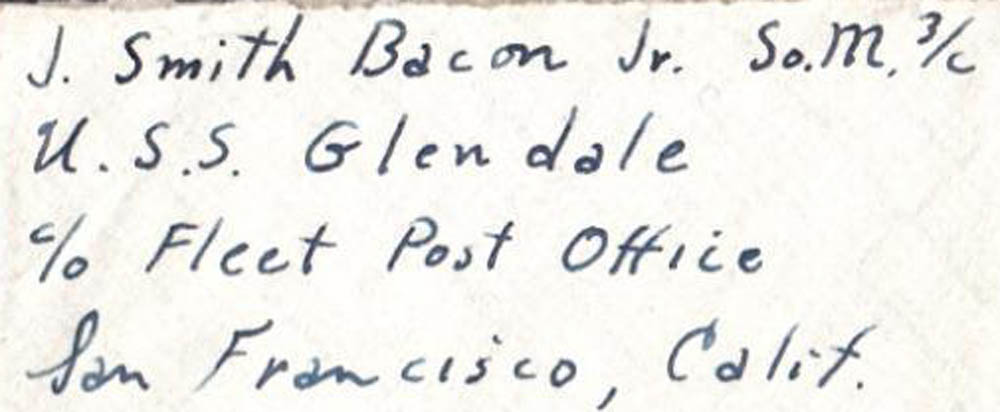 J. Smith Bacon Jr. So.M. 3/c
U.S.S. Glendale
c/o Fleet Post Office
San Francisco, Calif.